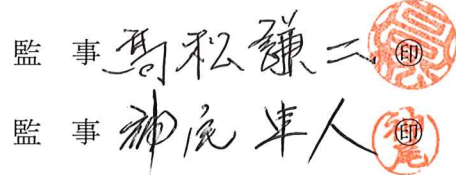 監事 髙松謙二 ㊞
監事 神尾隼人 ㊞